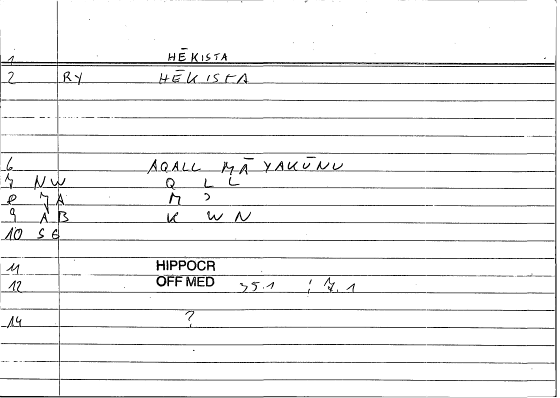 1 HĒKISTA
2 RY HĒKISTA
6 AQALL MĀ YAKŪNU
7 NW Q L L
8 M ʾ
9 AB K W N
10 SG
11 HIPPOCR
12 OFF MED 35.1 ; 7.1
14 ?